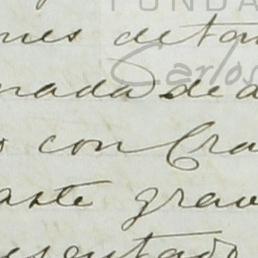 FUNDA
nes de tan
Carlos
nada de a
o con Cra
aste grav
esentado